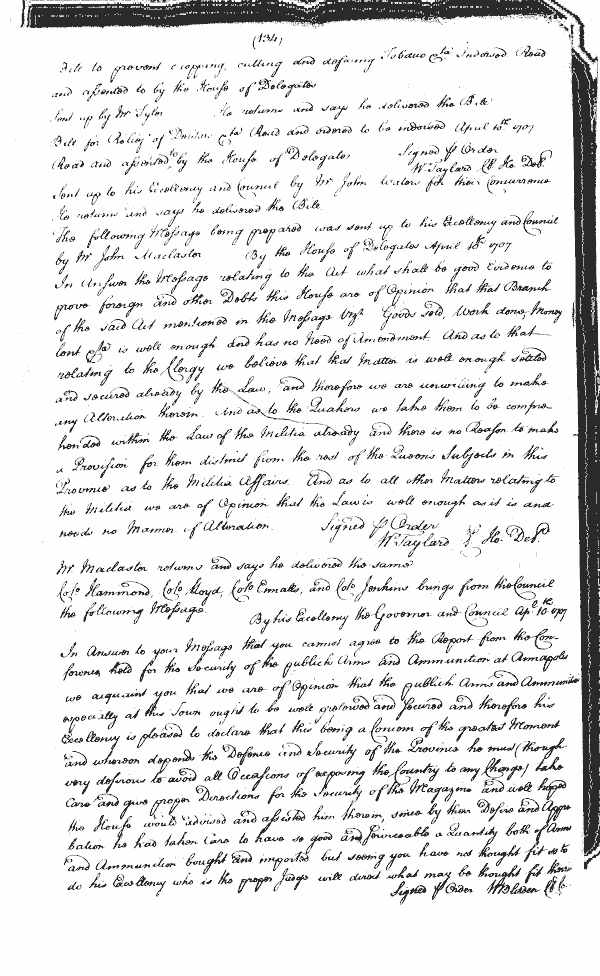 (134)
Bill to prevent cropping, cutting and defacing Tobacco &ca Indorsed Read
and assented to by the House of Delegates
Sent up by Mr Tyler He returns and says he delivered the Bill
Bill for Relief of Debtors &ca Read and ordered to be indorsed April 10th 1707
Read and assented to by the House of Delegates Signed p Order
W Taylard Cl Ho. Del.
Sent up to his Excellency and Council by Mr John Waters for their Concurrence
He returns and says he delivered the Bill
The following Message being prepared was sent up to his Excellency and Council
by Mr John Maclaster By the House of Delegates April 10th 1707
In Answer the Message relating to the Act what shall be good Evidence to
prove foreign and other Debts this House are of Opinion that that Branch
of the said Act mentioned in the Message vizt Goods sold, Work done, Money
lent &ca is well enough and has no Need of Amendment And as to that
relating to the Clergy we believe that that Matter is well enough settled
and secured already by the Law, and therefore we are unwilling to make
any Alteration therein. And as to the Quakers we take them to be compre=
hended within the Law of the Militia already and there is no Reason to make
a Provision for them distinct from the rest of the Queen's Subjects in this
Province as to the Militia Affairs. And as to all other Matters relating to
the Militia we are of Opinion that the Law is well enough as it is and
needs no Manner of Alteration. Signed p Order
W Taylard Cl Ho. Del.
Mr Maclaster returns and says he delivered the same
Colo Hammond, Colo Lloyd, Colo Ennalls, and Colo Jenkins brings from the Council
the following Message. By his Excellency the Governor and Council Apl 10th 1707
In Answer to your Message that you cannot agree to the Report from the Con=
ference held for the Security of the publick Arms and Ammunition at Annapolis
we acquaint you that we are of Opinion that the publick Arms and Ammunition
especially at this Town ought to be well preserved and secured and therefore his
Excellency is pleased to declare that this being a Concern of the greatest Moment
and whereon depends the Defence and Security of the Province he must (though
very desirous to avoid all Occasions of exposing the Country to any Charge) take
Care and give proper Directions for the Security of the Magazine and well hoped
the House would advised and assisted him therein, since by their Desire and Appro
bation he had taken Care to have so good and serviceable a Quantity both of Arms
and Ammunition bought and imported but seeing you have not thought fit so to
do his Excellency who is the proper Judge will direct what may be thought fit therein
Signed p Order W Bladen Cl Co.